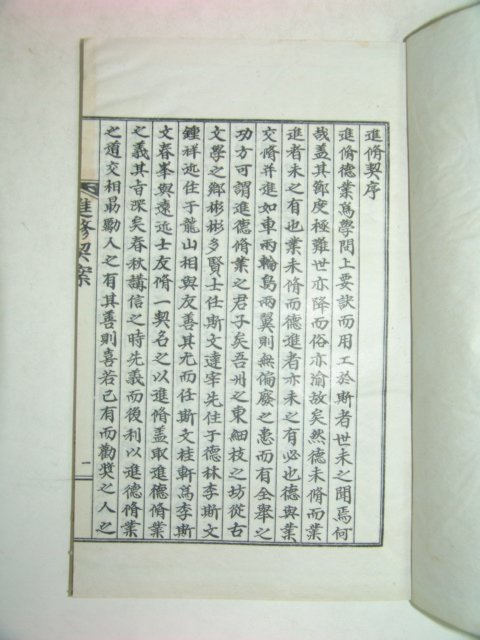 進脩契序
進脩德業爲學問上要訣而用工於斯者世未之聞焉何
哉盖其節度極難世亦降而俗亦渝故矣然德未脩而業
進者未之有也業未脩而德進者亦未之有必也德與業
交脩並進如車兩輪鳥兩翼則無偏廢之患而有全舉之
功方可謂進德脩業之君子矣吾州之東細枝之坊從古
文學之鄕彬彬多賢士任斯文達宰先住于德林李斯文
鍾祥近住于龍山相與友善其尤而任斯文桂軒爲李斯
文春峯與遠近士友脩一契名之以進脩盖取進德脩業
之義其旨深矣春秋講信之時先義而後利以進德脩業
之道交相勗勵人之有其善則喜若己有而勸奬之人之
進脩契案
一